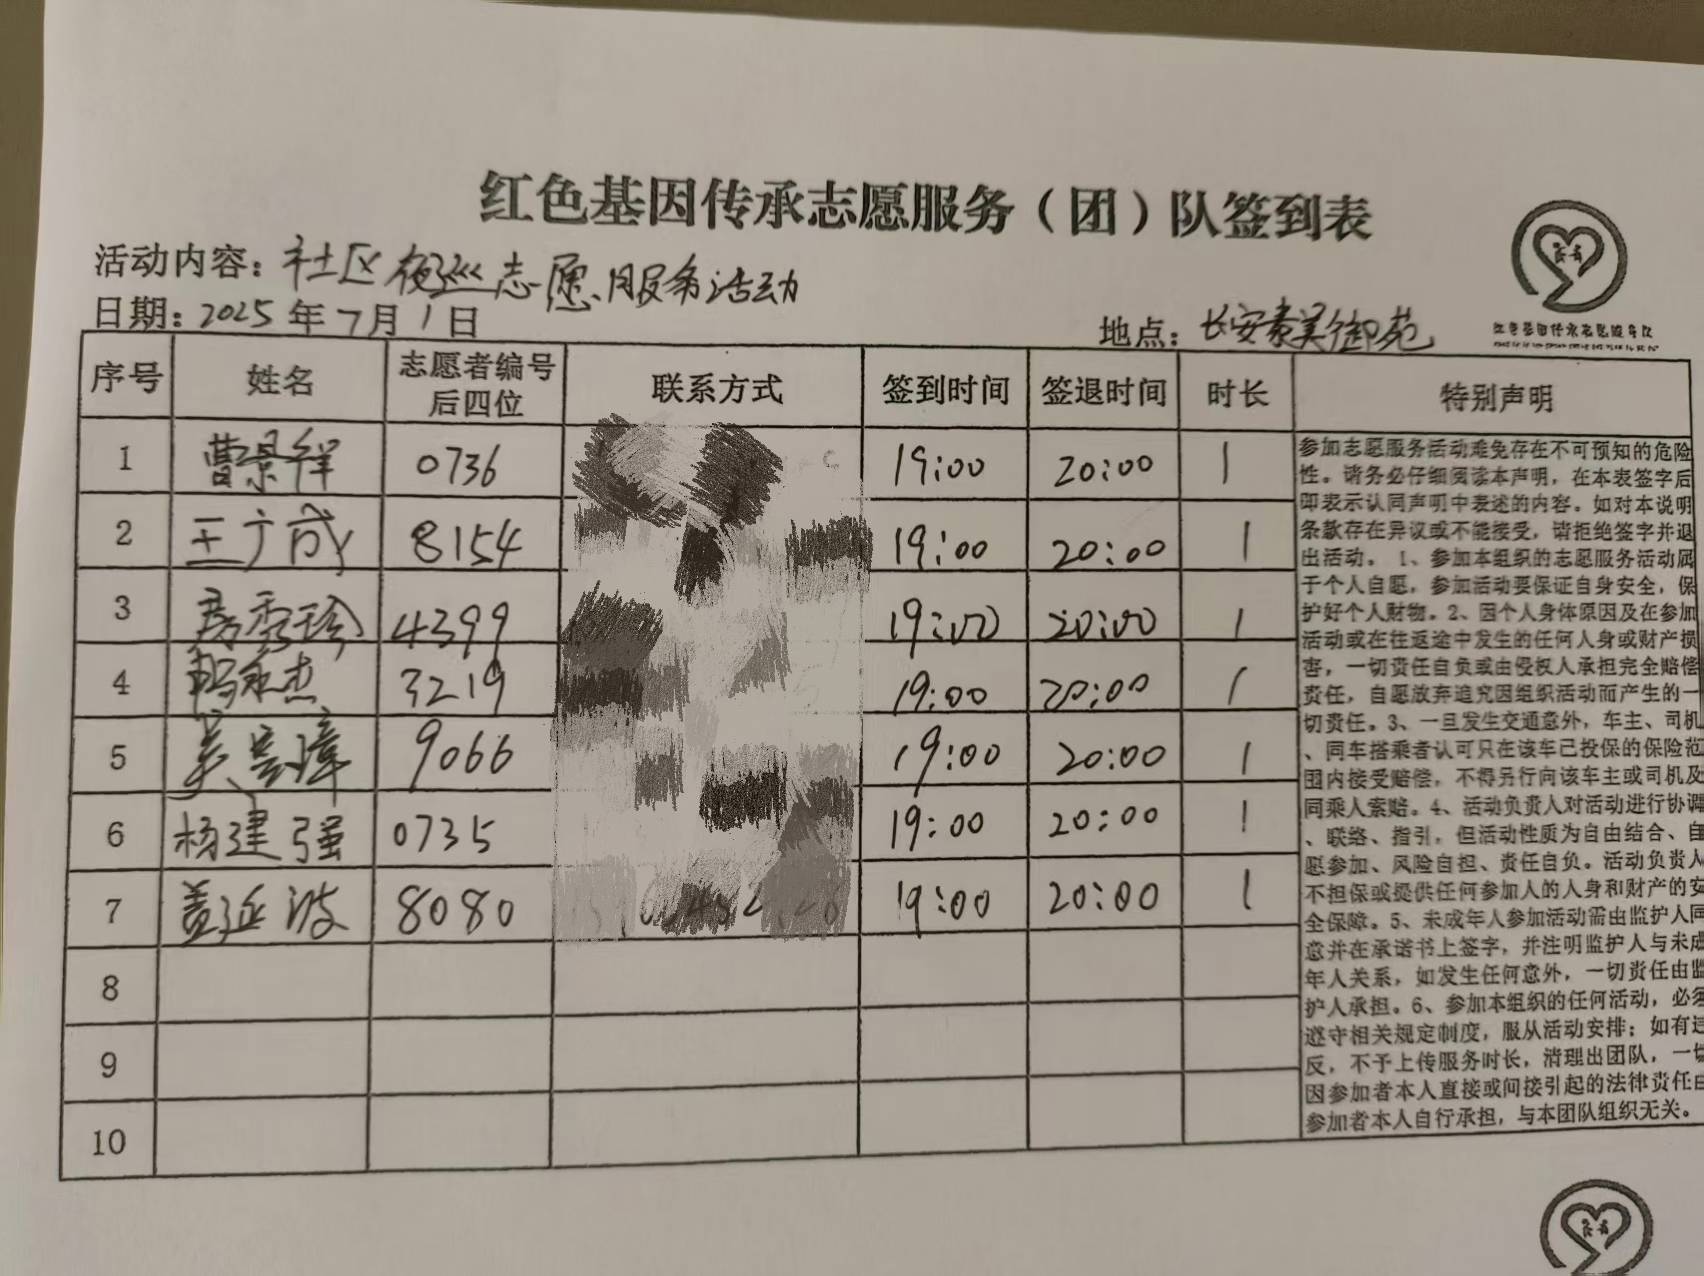 红色基因传承志愿服务（团）队签到表
活动内容：社区夜巡志愿服务活动
日期：2025年7月1日
地点：长安素美御苑
序号 姓名 志愿者编号后四位 联系方式 签到时间 签退时间 时长 特别声明
1 曹景祥 0736 19:00 20:00 1
2 王广成 8154 19:00 20:00 1
3 4399 19:00 20:00 1
4 3219 19:00 20:00 1
5 9066 19:00 20:00 1
6 杨建强 0735 19:00 20:00 1
7 盖延波 8080 19:00 20:00 1
8
9
10
参加志愿服务活动难免存在不可预知的危险
性。请务必仔细阅读本声明，在本表签字后
即表示认同声明中表述的内容。如对本说明
条款存在异议或不能接受，请拒绝签字并退
出活动。 1、参加本组织的志愿服务活动属
于个人自愿，参加活动要保证自身安全，保
护好个人财物。2、因个人身体原因及在参加
活动或在往返途中发生的任何人身或财产损
害，一切责任自负或由侵权人承担完全赔偿
责任，自愿放弃追究因组织活动而产生的一
切责任。3、一旦发生交通意外，车主、司机
、同车搭乘者认可只在该车已投保的保险范
围内接受赔偿，不得另行向该车主或司机及
同乘人索赔。4、活动负责人对活动进行协调
、联络、指引，但活动性质为自由结合、自
愿参加、风险自担、责任自负。活动负责人
不担保或提供任何参加人的人身和财产的安
全保障。5、未成年人参加活动需由监护人同
意并在承诺书上签字，并注明监护人与未成
年人关系，如发生任何意外，一切责任由监
护人承担。6、参加本组织的任何活动，必须
遵守相关规定制度，服从活动安排；如有违
反，不予上传服务时长，清理出团队，一切
因参加者本人直接或间接引起的法律责任由
参加者本人自行承担，与本团队组织无关。